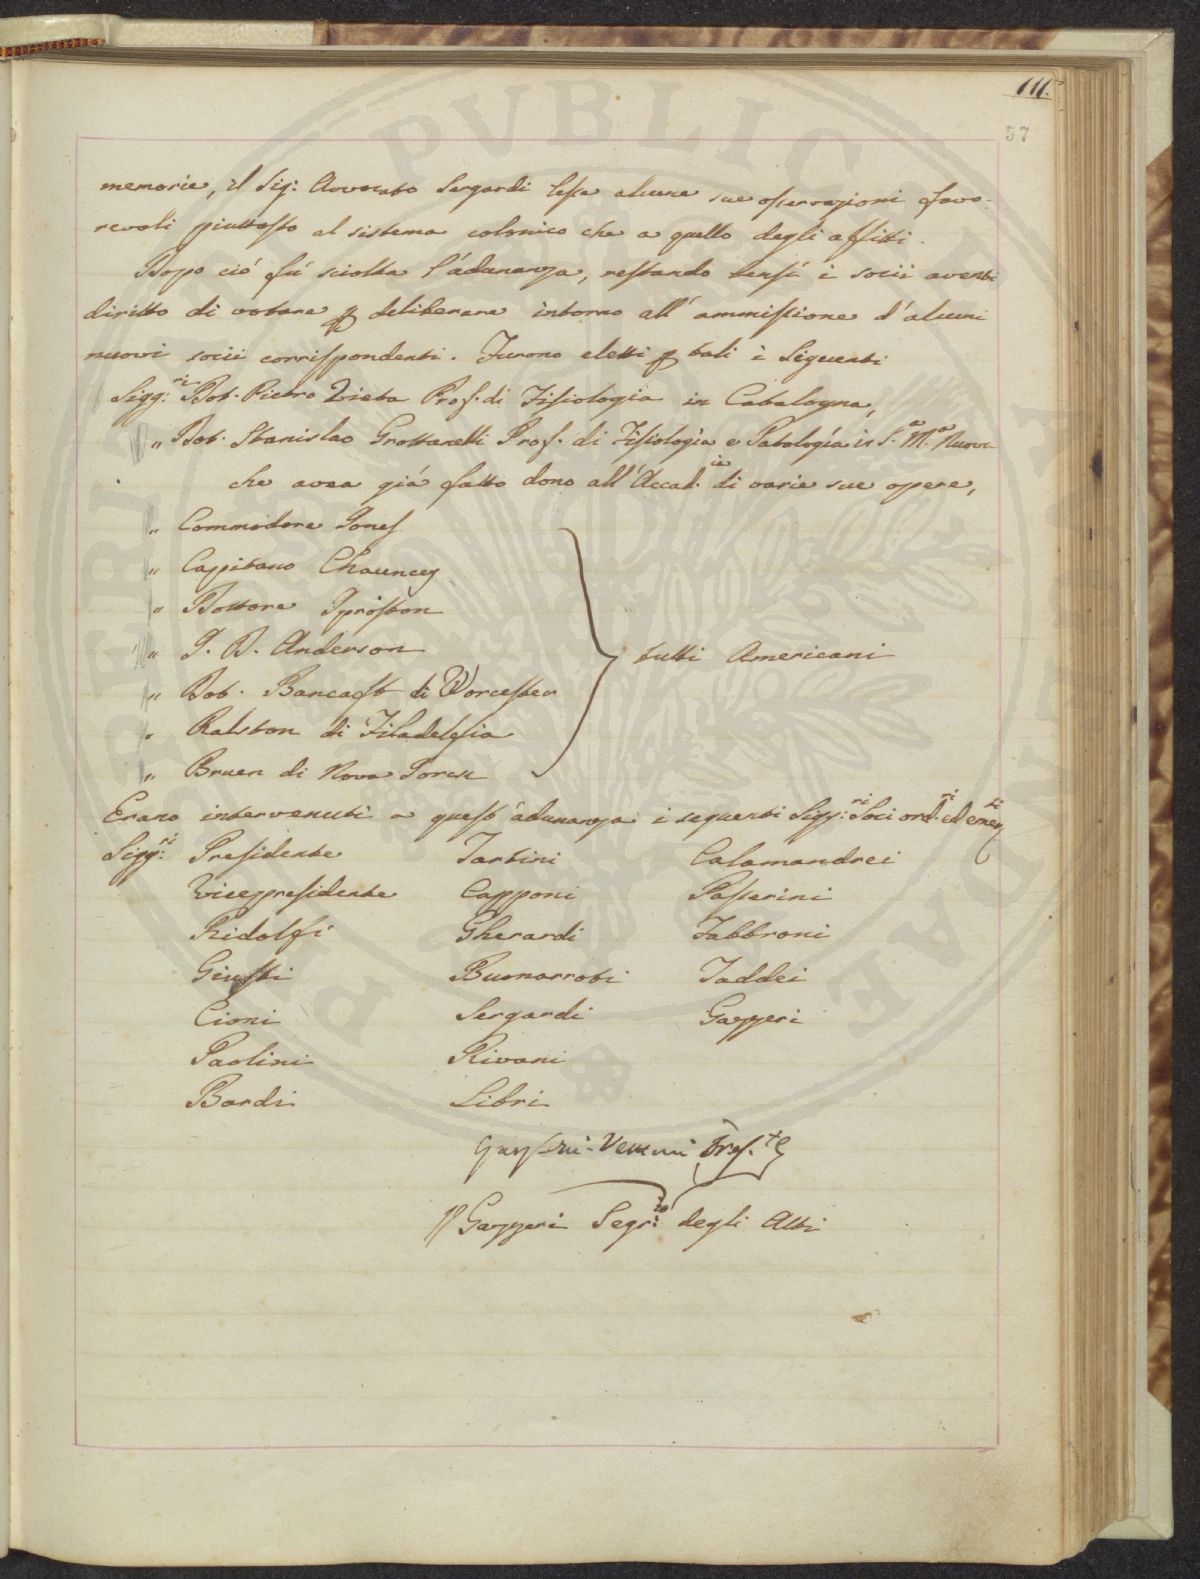 111.
57
memorie, il Sig: Avvocato Sergardi lesse alcune sue osservazioni favo-
revoli piuttosto al sistema colonico che a quello degli affitti.
Dopo ciò fù sciolta l'adunanza, restando bensì i socii aventi
diritto di votare p deliberare intorno all'ammissione d'alcuni
nuovi socii corrispondenti. Furono eletti p tali i Seguenti
Sigg:ri Dot. Pietro Vieta Prof. di Fisiologia in Catalogna,
" Dot. Stanislao Grottanelli Prof. di Fisiologia e Patologia in S.a M.a Nuova
che avea già fatto dono all'Accad.ia di varie sue opere,
" Commodore Jones
" Capitano Chauncey
" Dottore
" J. D. Anderson
" Dot. Bancroft di Worcester
" Ralston di Filadelfia
" Bruen di Nova Jorck
tutti Americani
Erano intervenuti a quest'adunanza i seguenti Sigg:ri Soci ord.ri ed emer.ti
Sigg:ri Presidente Tartini Calamandrei
Vicepresidente Capponi Passerini
Ridolfi Gherardi Fabbroni
Giusti Buonarroti Taddei
Cioni Sergardi Gazzeri
Paolini Rivani
Bardi Libri
Garzoni-Venturi Pres.te
Gazzeri Segr:io degli Atti
PVBLICA